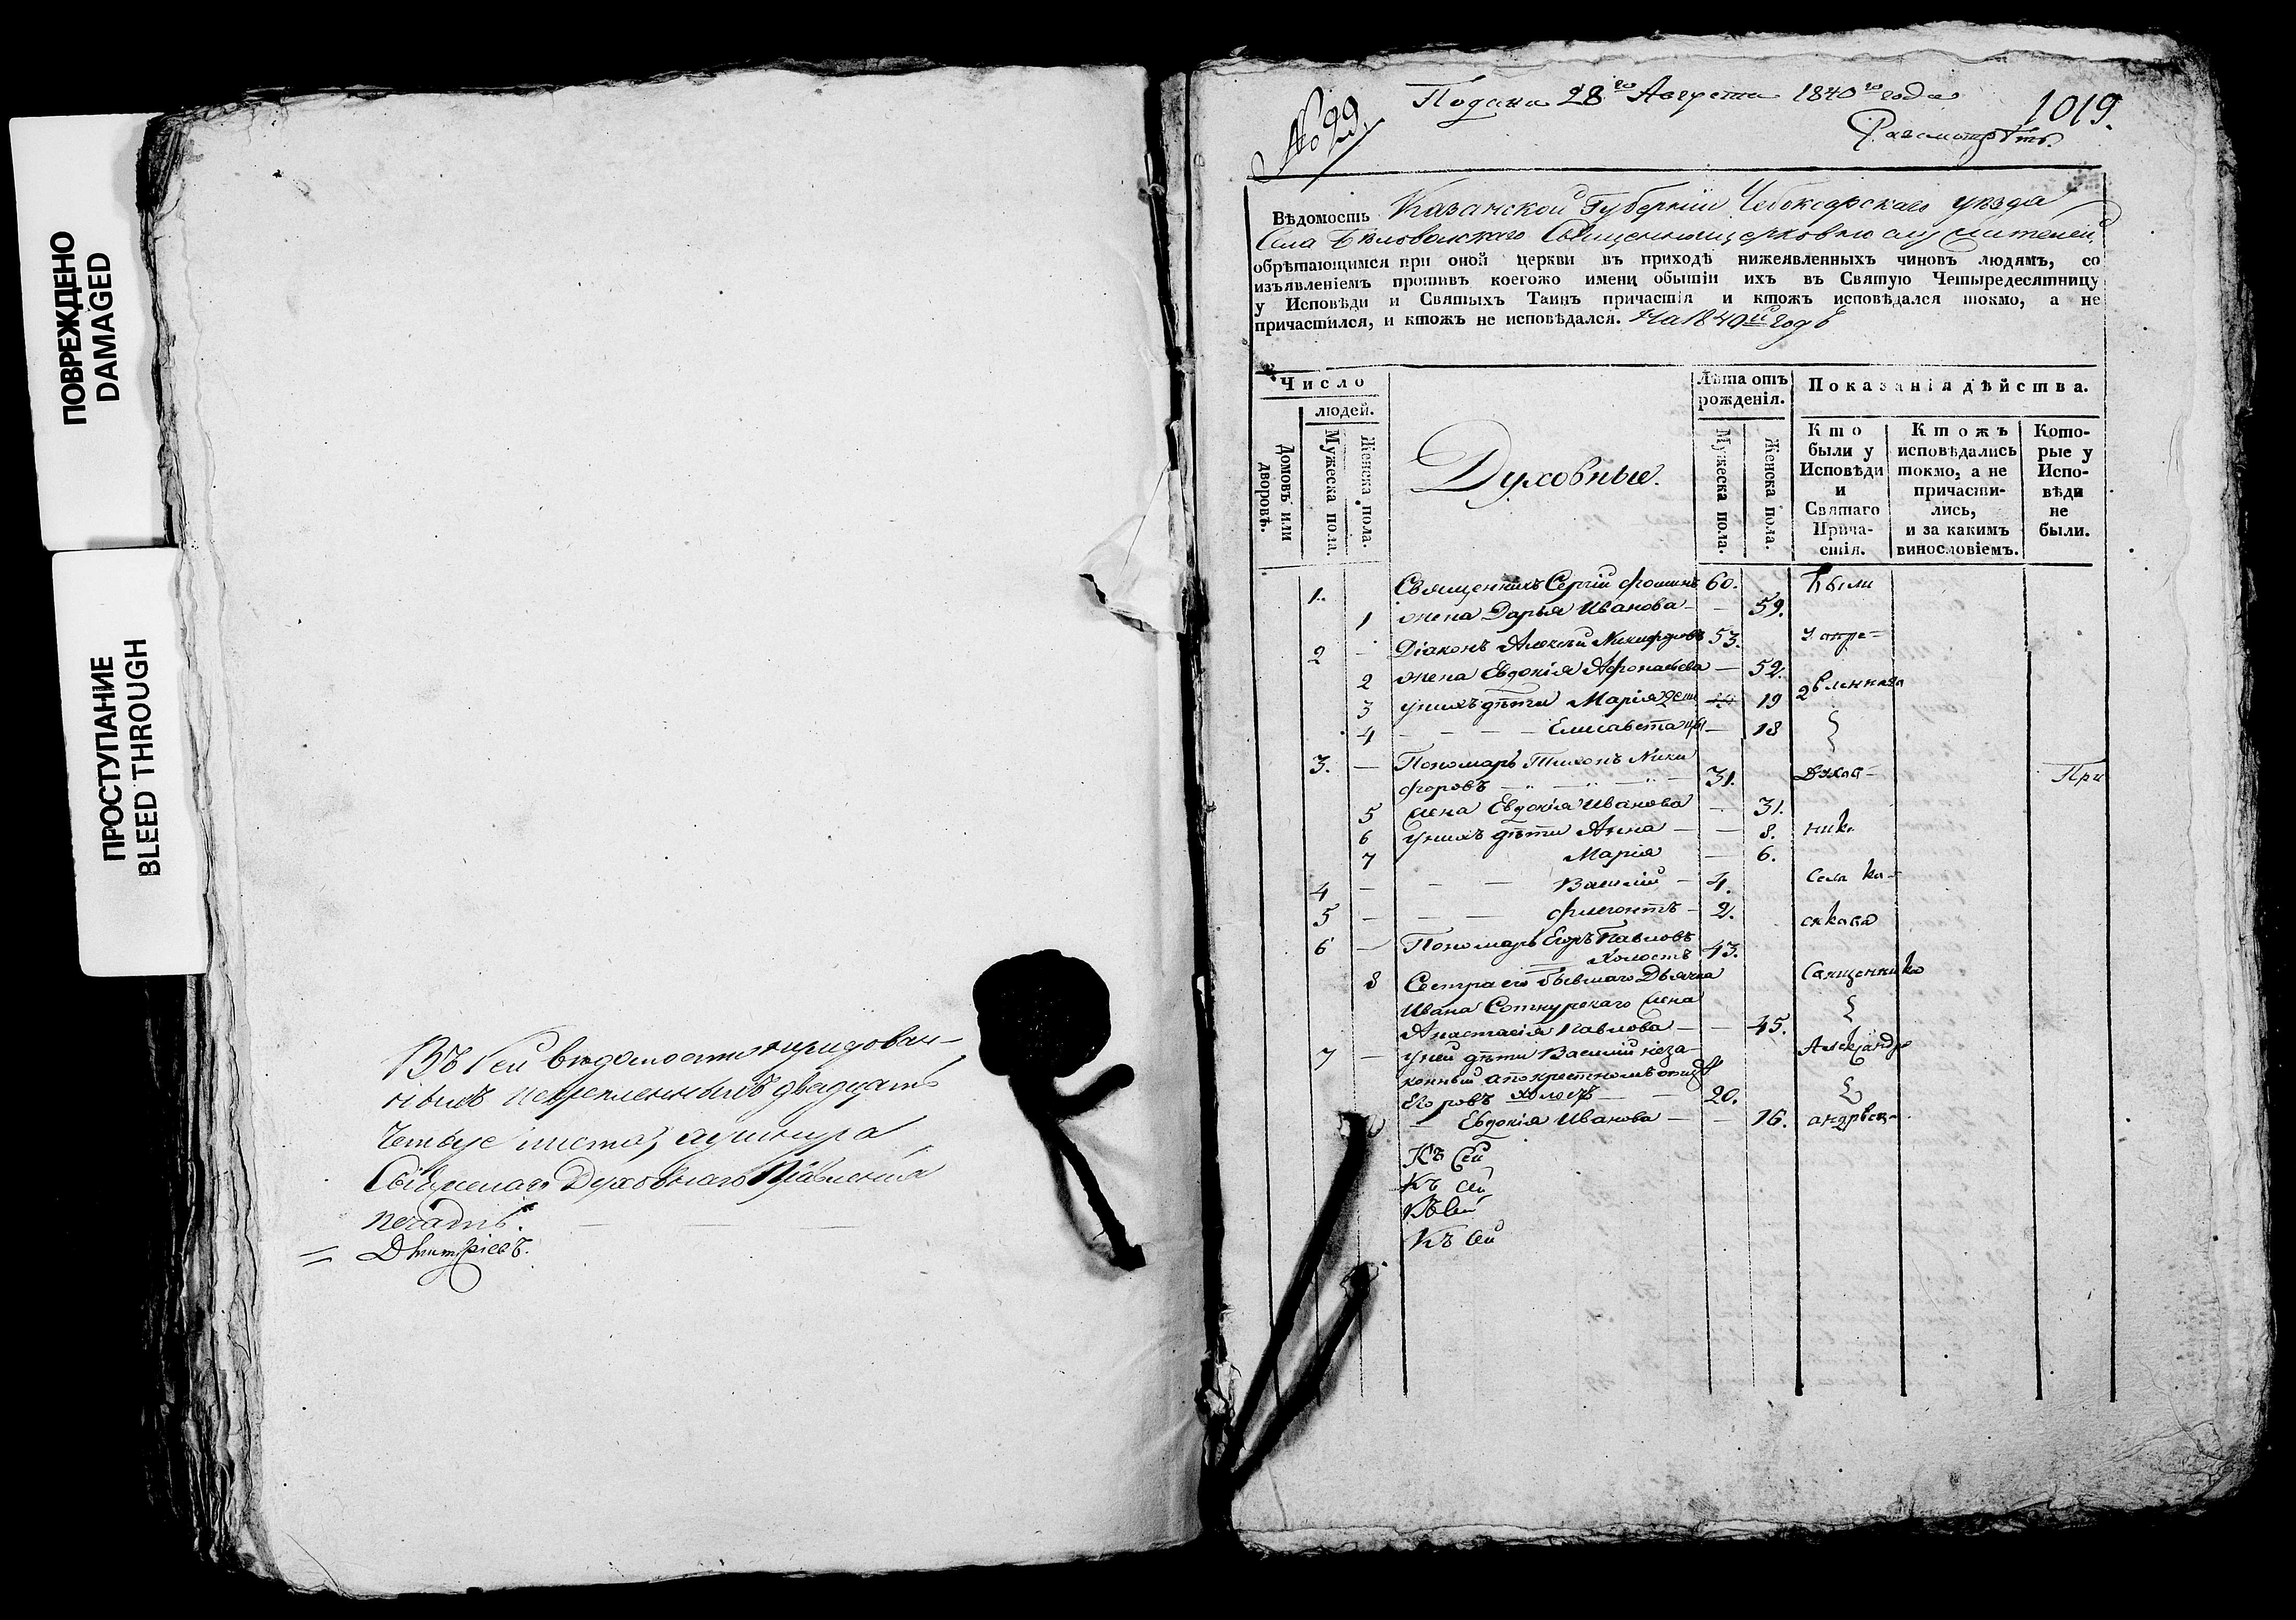 ПОВРЕЖДЕНО
DAMAGED
ПРОСТУПАНИЕ
BLEED THROUGH
Въ сей ведомости нумерован-
ныхъ и скрепленныхъ двадцать
четыре листа, а у шнура
Духовнаго Правленія
печать.
Дмитріевъ.
№ 99
Подана 28го Августа 1840го года
1019.
Разсмотрѣть.
Вѣдомость Казанской Губерніи Чебоксарскаго уѣзда
Села Бѣловолжскаго Священноцерковнослужителей,
обрѣтающимся при оной церкви въ приходѣ нижеявленныхъ чиновъ людямъ, со
изъявленіемъ противъ коегожо имени обытіи ихъ въ Святую Четыредесятницу
у Исповѣди и Святыхъ Таинъ причастія и ктожъ исповѣдался токмо, а не
причастился, и ктожъ не исповѣдался. На 1840й годъ
Число
людей.
Домовъ или дворовъ.
Мужеска пола.
Женска пола.
Духовные.
Лѣта отъ
рожденія.
Мужеска пола.
Женска пола.
Показанія дѣйства.
Кто
были у
Исповѣди
и
Святаго
Прича-
стія.
Ктожъ
исповѣдались
токмо, а не
причасти-
лись,
и за какимъ
винословіемъ.
Кото-
рые у
Испо-
вѣди
не
были.
1. Священникъ Сергій Фоминъ 60. были
1 жена Дарья Иванова — — 59.
2 — Діаконъ Алексѣй Никифоровъ 53.
2 жена Евдокія Афонасьева — 52.
3 у нихъ дѣти Марія 19
4 — — — — Елисавета — 18
3. — Пономарь Тихонъ Ники
форовъ 31. Духов- При
5 жена Евдокія Иванова — 31.
6 у нихъ дѣти Анна — — 8. ник
7 Марія — 6.
4 — — — Василій — 4. Села
5 — — — Флегонтъ — 2.
6 — Пономарь Егоръ Павловъ
Холостъ 43.
8 Сестра его бывшаго Дьячка Священника
Ивана Сотнурскаго жена
Анастасія Павлова — — 45.
7 — у ней дѣти Василій неза- Александр
конный а по крестномъ отцѣ
Егоровъ холостъ — 20.
— Евдокія Иванова — — 16.
Къ сей
Къ сей
Къ сей
Къ сей